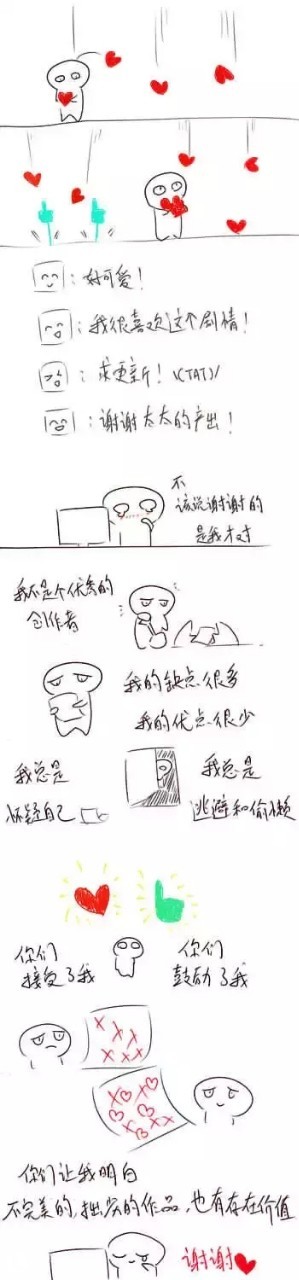 ：好可爱！
：我很喜欢这个剧情！
：求更新！\(TAT)/
：谢谢太太的产出！
不
该说谢谢的
是我才对
我不是个优秀的
创作者
我的缺点很多
我的优点很少
我总是
怀疑自己
我总是
逃避和偷懒
你们
接受了我
你们
鼓励了我
你们让我明白
不完美的,拙劣的作品,也有存在价值
谢谢